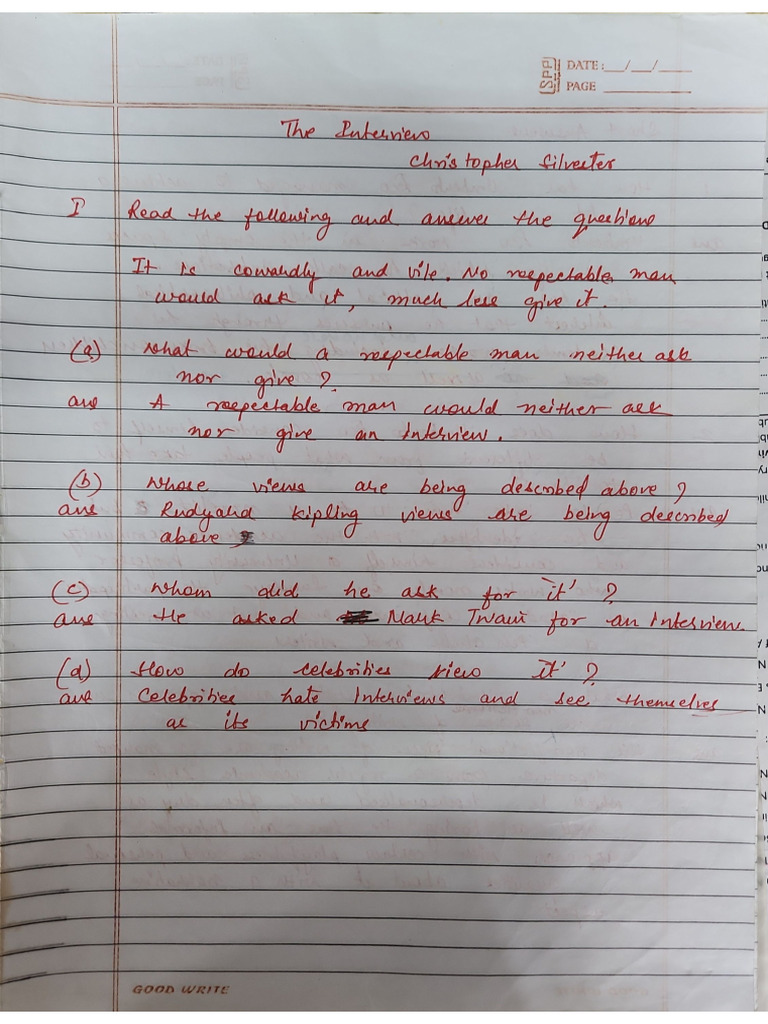 SPP DATE: __/__/____
PAGE ________
The Interview
Christopher Silvester
I Read the following and answer the questions
It is cowardly and vile. No respectable man
would ask it, much less give it.
(a) What would a respectable man neither ask
nor give ?
ans A respectable man would neither ask
nor give an Interview.
(b) Whose views are being described above ?
ans Rudyard Kipling views are being described
above
(c) Whom did he ask for 'it' ?
ans He asked Mark Twain for an Interview
(d) How do celebrities view 'it' ?
ans Celebrities hate Interviews and see themselves
as its victims
GOOD WRITE